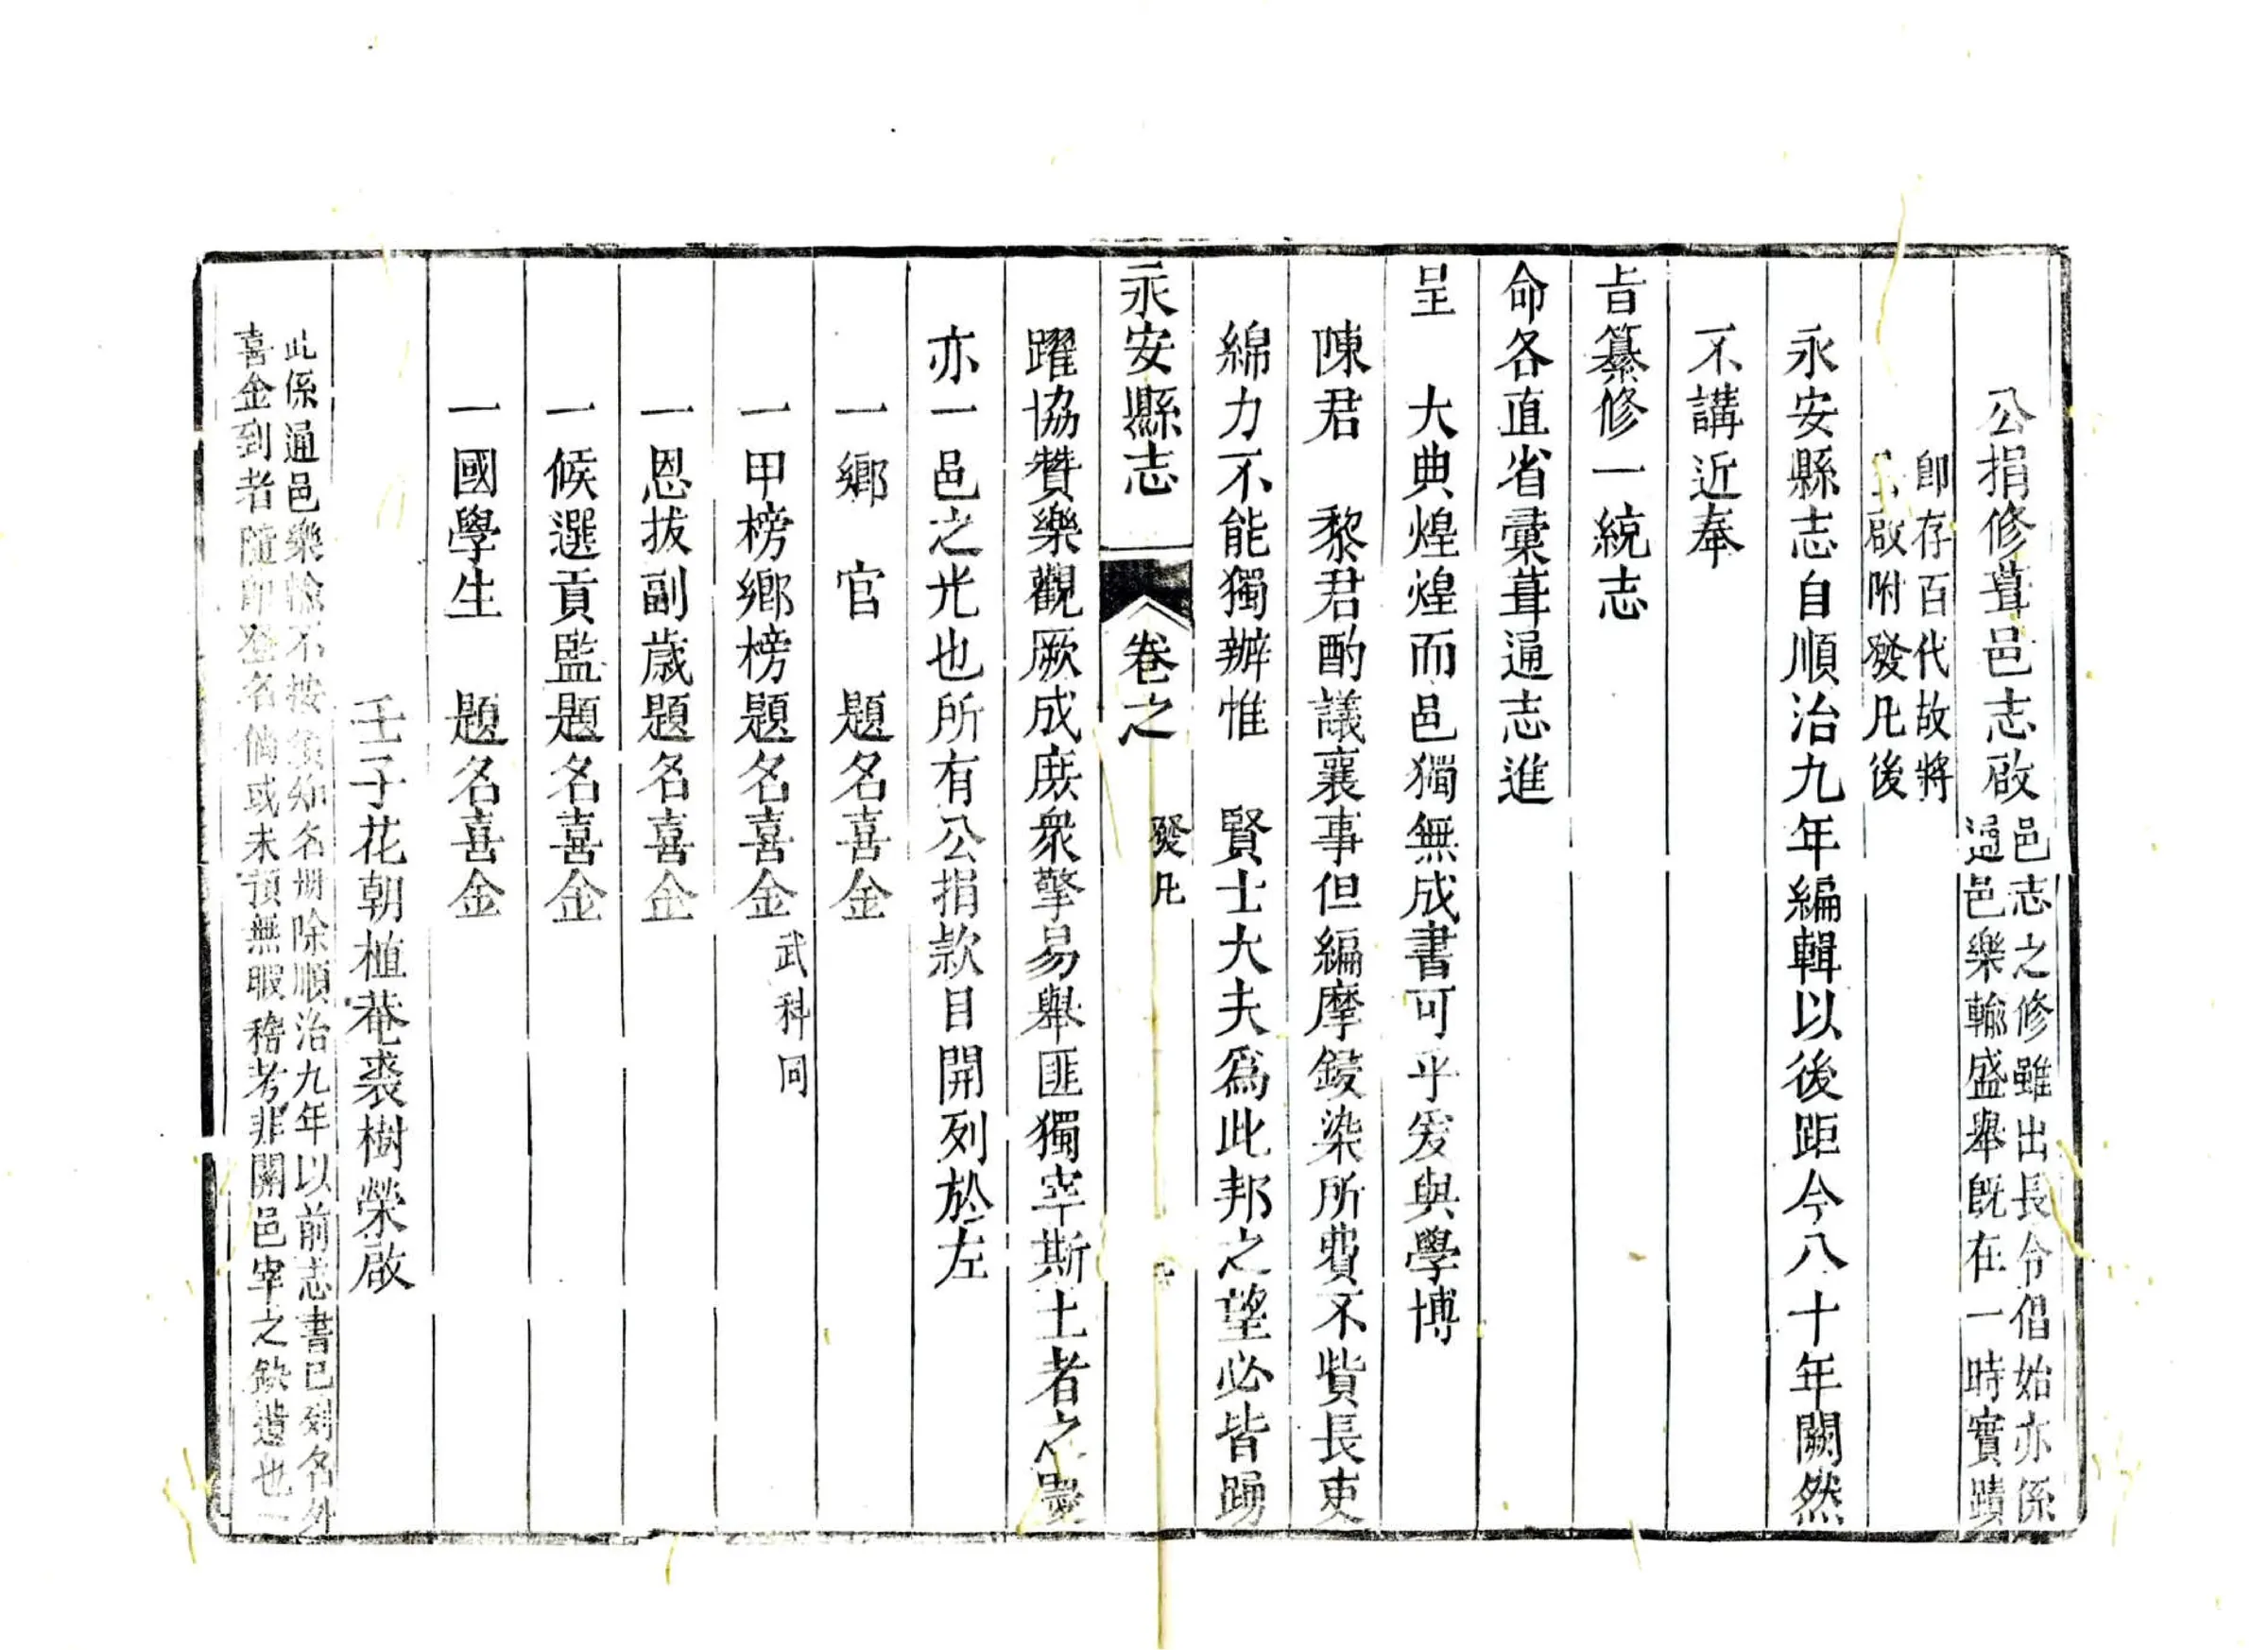 公捐修葺邑志啟
邑志之修雖出長令倡始亦係
通邑樂輸盛舉旣在一時實蹟
卽存百代故將
啟附發凡後
永安縣志自順治九年編輯以後距今八十年闕然
不講近奉
旨纂修一統志
命各直省彙葺通志進
呈　大典煌煌而邑獨無成書可乎爰與學博
陳君　黎君酌議襄事但編摩鋟染所費不貲長吏
綿力不能獨辦惟　賢士大夫爲此邦之望必皆踴
永安縣志　卷之　發凡
躍協贊樂觀厥成庶衆擎易舉匪獨宰斯土者之慶
亦一邑之光也所有公捐款目開列於左
一鄉　官　題名喜金
一甲榜鄉榜題名喜金武科同
一恩拔副歲題名喜金
一候選貢監題名喜金
一國學生　題名喜金
壬子花朝植菴裘樹榮啟
此係通邑樂輸不按資如名冊除順治九年以前志書已列名外
喜金到者隨卽登名倘或未預無暇稽考非關邑宰之缺遺也